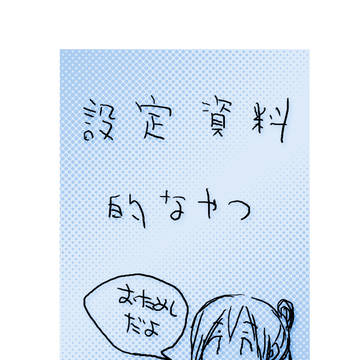 設定資料
的なやつ
おためし
だよ